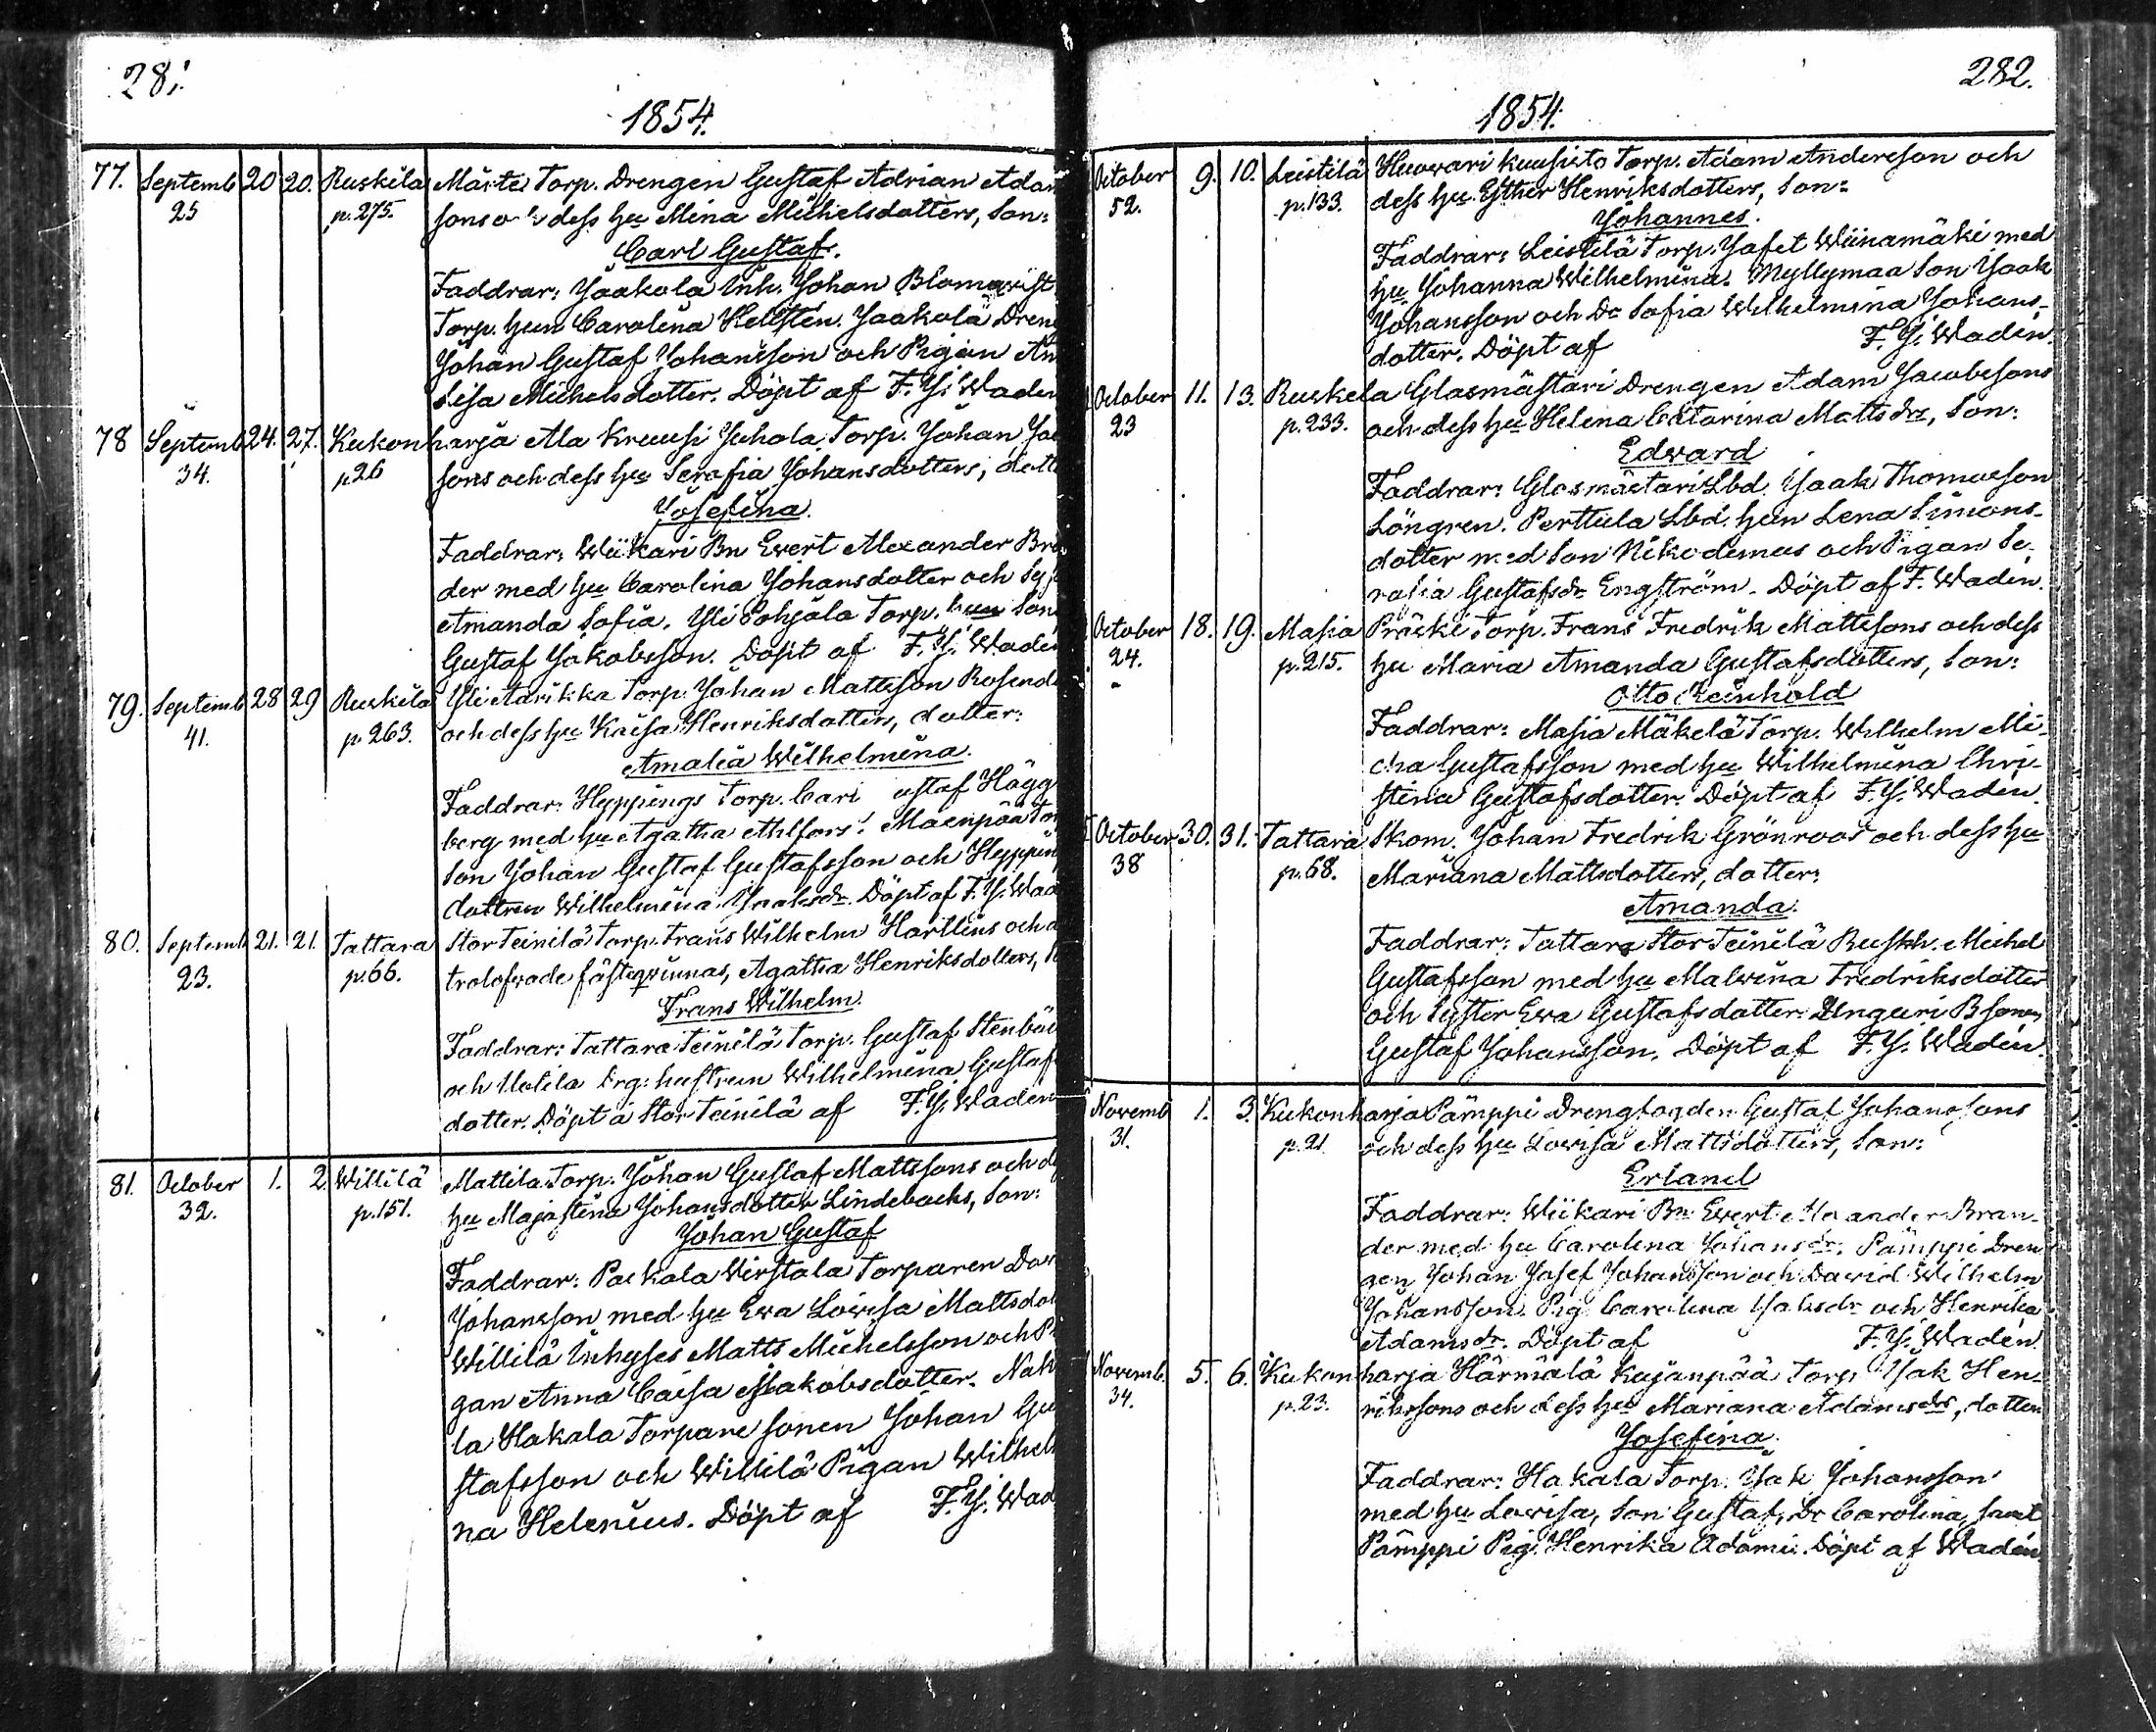 281
1854.
77. Septemb 20 20. Ruskila Mäste Torp. Drengen Gustaf Adrian Adam
25 p. 275. sons o dess hu Mina Michelsdotters, Son:
Carl Gustaf.
Faddrar: Jaakola Inh. Johan Blomqvist
Torp. hun Carolina Hellsten. Jaakola Dren
Johan Gustaf Johansson och Pigan An
Lisa Michelsdotter. Döpt af F. J. Waden
78 Septemb 24. 27. Kukonharja Ala Kruusi Juhola Torp. Johan Ja
34. p 26 sons och dess hu Serafia Johansdotters, dott
Josefina.
Faddrar: Wiikari Bn Evert Alexander Bra
der med hu Carolina Johansdotter och Sy
Amanda Sofia. Yli Pohjala Torp. Son
Gustaf Jakobsson. Döpt af F. J. Waden
79. Septemb 28 29 Ruskila Yli Aarikka Torp. Johan Mattsson Rosend
41. p. 263. och dess hu Kaisa Henriksdotters, dotter:
Amalia Wilhelmina.
Faddrar: Hyppings Torp. Carl ustaf Hägg
berg med hu Agatha Ahlfors. Maenpää Tor
Son Johan Gustaf Gustafsson och Hyppin
dottren Wilhelmina Jaaksdr. Döpt af F. J. Wad
80. Septemb 21. 21. Tattara Stor Teinilä Torp. Frans Wilhelm Hartlins och
23. p. 66. trolofvade fästeqvinnas, Agatha Henriksdotters,
Frans Wilhelm.
Faddrar: Tattara Teinilä Torp. Gustaf Stenbäc
och Uotila Drg: hustrun Wilhelmina Gustaf
dotter. Döpt å Stor Teinilä af F. J. Waden
81. October 1. 2. Willilä Mattila Torp. Johan Gustaf Mattssons och d
32. p. 151. hu Majastina Johansdotter Lindebacks, Son:
Johan Gustaf
Faddrar: Paekala Wirstala Torparen Da
Johansson med hu Eva Lovisa Mattsdot
Willilä Inhyses Matts Michelsson och P
gan Anna Caisa Jakobsdotter. Nak
la Hakala Torpare sonen Johan Gu
stafsson och Willilä Pigan Wilhel
na Helenius. Döpt af F. J. Wad
282.
1854.
October 9. 10. Leistilä Huovari Kuusisto Torp. Adam Andersson och
52. p. 133. dess hu Esther Henriksdotters, Son:
Johannes.
Faddrar: Leistilä Torp. Jafet Wiinamäki med
hu Johanna Wilhelmina. Myllymaa Son Jaak
Johansson och Dr Sofia Wilhelmina Johans-
dotter. Döpt af F. J. Waden.
October 11. 13. Ruskela Glasmästari Drengen Adam Jacobssons
23 p. 233. och dess hu Helena Catarina Mattsdrs, Son:
Edvard
Faddrar: Glasmästari Lbd. Jaak Thomasson
Löngren. Perttula Lbd. hun Lena Simons-
dotter med Son Nikodemus och Pigan Se-
rafia Gustafsdr Engström. Döpt af F. Waden.
October 18. 19. Masia Präski Torp. Frans Fredrik Mattssons och dess
24. p. 215. hu Maria Amanda Gustafsdotters, Son:
Otto Reinhold
Faddrar: Masia Mäkelä Torp. Wilhelm Mi-
cha Gustafsson med hu Wilhelmina Chri-
stina Gustafsdotter. Döpt af F. J. Waden.
October 30. 31. Tattara Skom. Johan Fredrik Grönroos och dess hu
38 p. 68. Mariana Mattsdotters, dotter:
Amanda.
Faddrar: Tattara Stor Teinilä Ruskh. Michel
Gustafsson med hu Malvina Fredriksdotter
och Syster Eva Gustafsdotter. Unguri Bsonen
Gustaf Johansson. Döpt af F. J. Waden.
Novemb 1. 3. Kukonharja Pämppi Drengfogden Gustaf Johanssons
31. p. 21 och dess hu Lovisa Mattsdotters, Son:
Erland
Faddrar: Wiikari Bn Evert Alexander Bran-
der med hu Carolina Johansdr. Pämppi Dren
gen Johan Josef Johansson och David Wilhelm
Johansson. Pig. Carolina Isaksdr och Henrika
Adamsdr. Döpt af F. J. Waden.
Novemb. 5. 6. Kukonharja Härmälä Kujanpää Torp. Isak Hen-
34. p. 23. rikssons och dess hu Mariana Adamsdrs, dotter
Josefina.
Faddrar: Hakala Torp. Isak Johansson
med hu Lovisa, Son Gustaf, Dr Carolina, samt
Pämppi Pig. Henrika Adami. Döpt af Waden